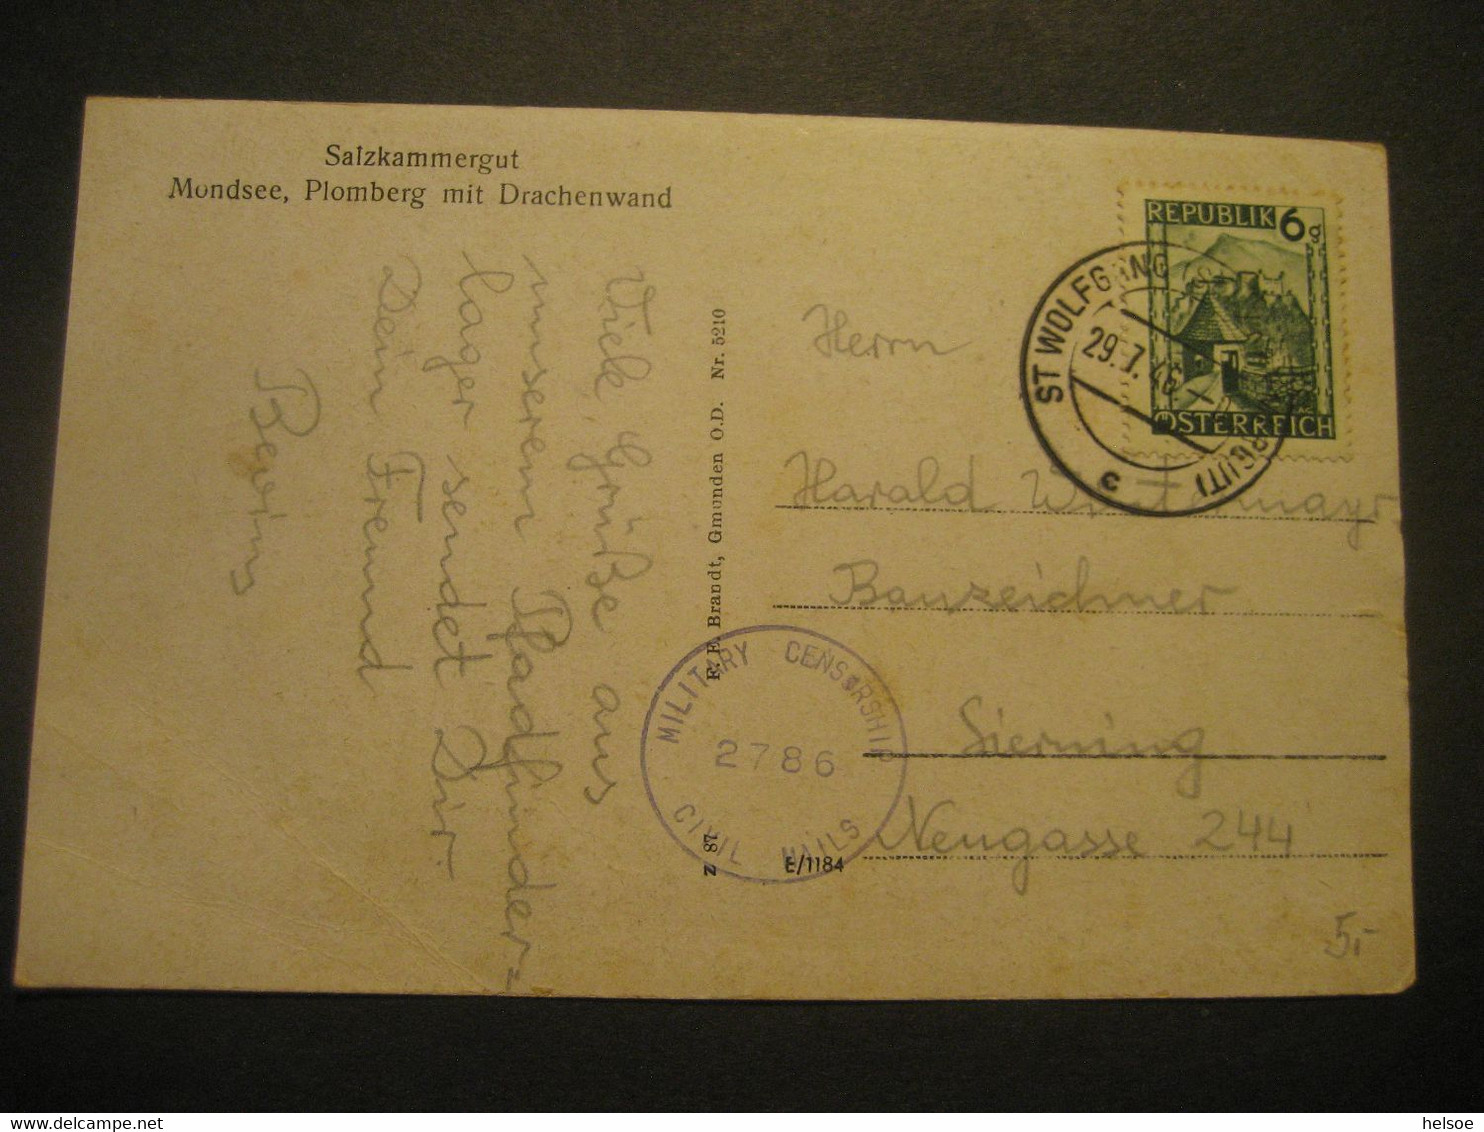 Salzkammergut
Mondsee, Plomberg mit Drachenwand
REPUBLIK 6g
ÖSTERREICH
ST WOLFGANG
29.7.46
c
Viele Grüße aus
unserem Pfadfinder=
lager sendet Dir
Dein Freund
F. E. Brandt, Gmunden O.D. Nr. 5210
z 87
E/1184
MILITARY CENSORSHIP
2786
CIVIL MAILS
Herrn
Harald
Bauzeichner
Sierning
Neugasse 244
5,-
helsoe